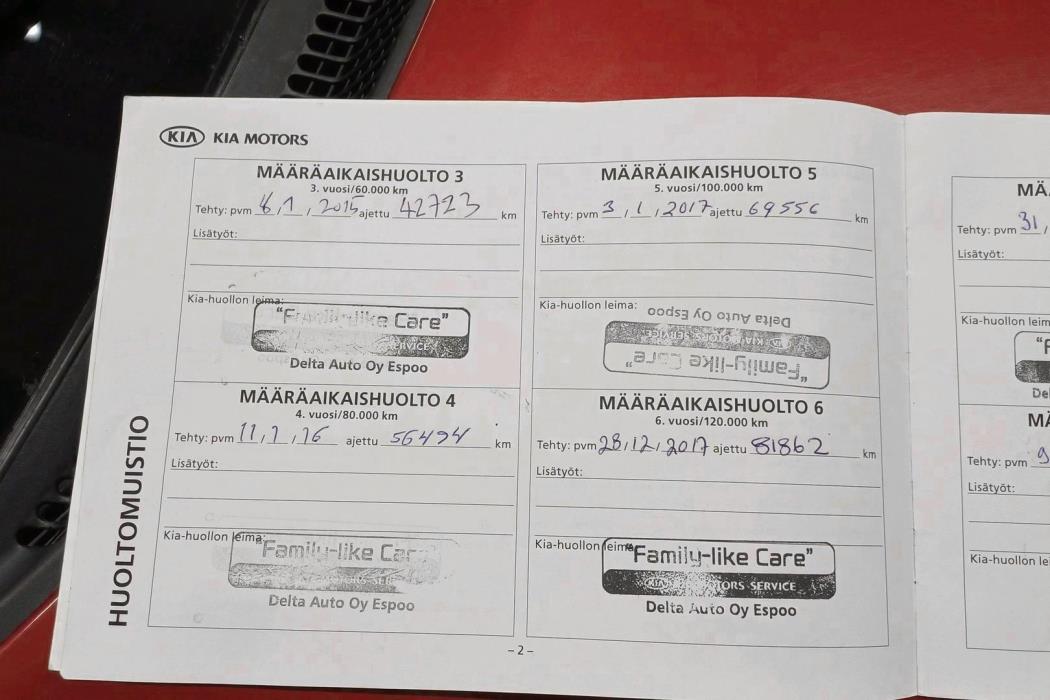 KIA KIA MOTORS
HUOLTOMUISTIO
MÄÄRÄAIKAISHUOLTO 3
3. vuosi/60.000 km
Tehty: pvm 8 / 1 / 2015 ajettu 42723 km
Lisätyöt:
Kia-huollon leima:
"Family-like Care"
SERVICE
Delta Auto Oy Espoo
MÄÄRÄAIKAISHUOLTO 4
4. vuosi/80.000 km
Tehty: pvm 11 / 1 / 16 ajettu 56494 km
Lisätyöt:
Kia-huollon leima:
"Family-like Car
MOTORS SER
Delta Auto Oy Espoo
MÄÄRÄAIKAISHUOLTO 5
5. vuosi/100.000 km
Tehty: pvm 3 / 1 / 2017 ajettu 69556 km
Lisätyöt:
Kia-huollon leima:
"Family-like Care"
KIA MOTORS SERVICE
Delta Auto Oy Espoo
MÄÄRÄAIKAISHUOLTO 6
6. vuosi/120.000 km
Tehty: pvm 28 / 12 / 2017 ajettu 81862 km
Lisätyöt:
Kia-huollon leima:
"Family-like Care"
KIA MOTORS SERVICE
Delta Auto Oy Espoo
– 2 –
MÄ
Tehty: pvm 31 /
Lisätyöt:
Kia-huollon leim
"F
De
MÄ
Tehty: pvm 9
Lisätyöt:
Kia-huollon le